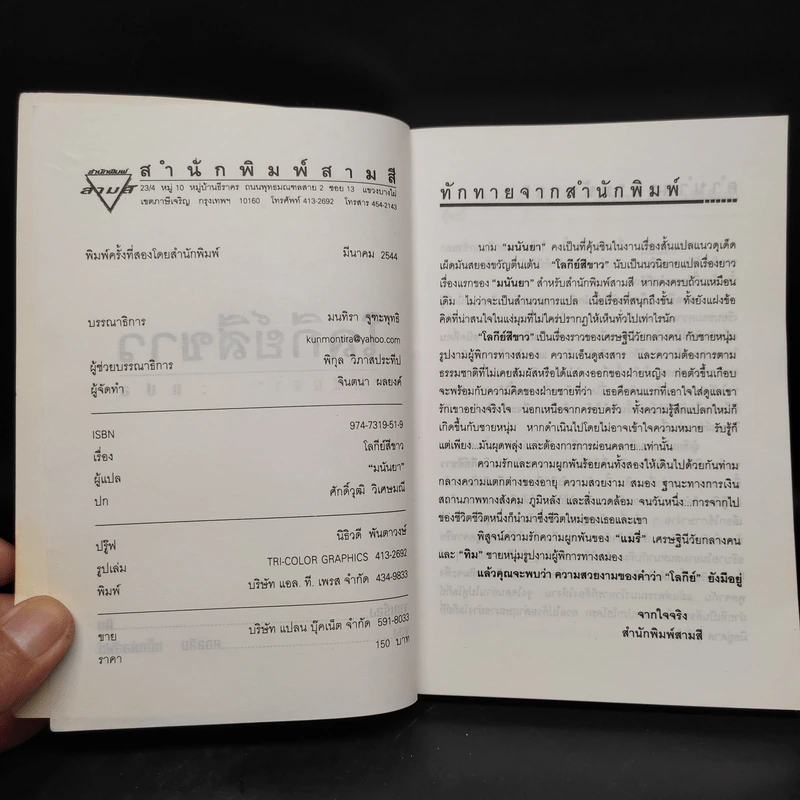 สำนักพิมพ์
สามสี
สำนักพิมพ์สามสี
23/4 หมู่ 10 หมู่บ้านธีราคร ถนนพุทธมณฑลสาย 2 ซอย 13 แขวงบางไผ่
เขตภาษีเจริญ กรุงเทพฯ 10160 โทรศัพท์ 413-2692 โทรสาร 454-2143
พิมพ์ครั้งที่สองโดยสำนักพิมพ์ มีนาคม 2544
บรรณาธิการ มนทิรา จูฑะพุทธิ
kunmontira@yahoo.com
ผู้ช่วยบรรณาธิการ พิกุล วิภาสประทีป
ผู้จัดทำ จินตนา ผลยงค์
ISBN 974-7319-51-9
เรื่อง โลกีย์สีขาว
ผู้แปล "มนันยา"
ปก ศักดิ์วุฒิ วิเศษมณี
ปรู๊ฟ นิธิวดี พันตาวงษ์
รูปเล่ม TRI-COLOR GRAPHICS 413-2692
พิมพ์ บริษัท แอล. ที. เพรส จำกัด 434-9833
ขาย บริษัท แปลน บุ๊คเน็ต จำกัด 591-8033
ราคา 150 บาท
ทักทายจากสำนักพิมพ์......
นาม "มนันยา" คงเป็นที่คุ้นชินในงานเรื่องสั้นแปลแนวดุเด็ด
เผ็ดมันสยองขวัญตื่นเต้น "โลกีย์สีขาว" นับเป็นนวนิยายแปลเรื่องยาว
เรื่องแรกของ "มนันยา" สำหรับสำนักพิมพ์สามสี หากคงครบถ้วนเหมือน
เดิม ไม่ว่าจะเป็นสำนวนการแปล เนื้อเรื่องที่สนุกถึงขั้น ทั้งยังแฝงข้อ
คิดที่น่าสนใจในแง่มุมที่ไม่ใคร่ปรากฏให้เห็นทั่วไปเท่าไรนัก
"โลกีย์สีขาว" เป็นเรื่องราวของเศรษฐินีวัยกลางคน กับชายหนุ่ม
รูปงามผู้พิการทางสมอง ความเอ็นดูสงสาร และความต้องการตาม
ธรรมชาติที่ไม่เคยสัมผัสหรือได้แสดงออกของฝ่ายหญิง ก่อตัวขึ้นเกือบ
จะพร้อมกับความคิดของฝ่ายชายที่ว่า เธอคือคนแรกที่เอาใจใส่ดูแลเขา
รักเขาอย่างจริงใจ นอกเหนือจากครอบครัว ทั้งความรู้สึกแปลกใหม่ก็
เกิดขึ้นกับชายหนุ่ม หากดำเนินไปโดยไม่อาจเข้าใจความหมาย รับรู้ก็
แต่เพียง...มันผุดพลุ่ง และต้องการการผ่อนคลาย...เท่านั้น
ความรักและความผูกพันร้อยคนทั้งสองให้เดินไปด้วยกันท่าม
กลางความแตกต่างของอายุ ความสวยงาม สมอง ฐานะทางการเงิน
สถานภาพทางสังคม ภูมิหลัง และสิ่งแวดล้อม จนวันหนึ่ง...การจากไป
ของชีวิตชีวิตหนึ่งก็นำมาซึ่งชีวิตใหม่ของเธอและเขา
พิสูจน์ความรักความผูกพันของ "แมรี่" เศรษฐินีวัยกลางคน
และ "ทิม" ชายหนุ่มรูปงามผู้พิการทางสมอง
แล้วคุณจะพบว่า ความสวยงามของคำว่า "โลกีย์" ยังมีอยู่
จากใจจริง
สำนักพิมพ์สามสี